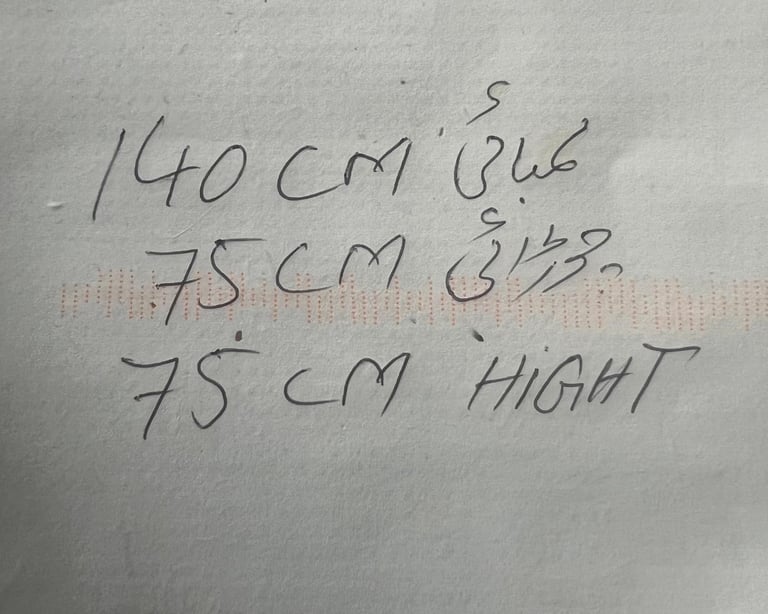 140 CM لمبائی
75 CM چوڑائی
75 CM HiGHT